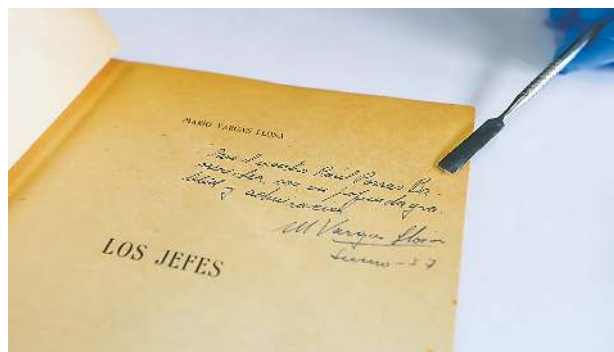 MARIO VARGAS LLOSA
Para el maestro Raúl Porras Ba-
rrenechea, con mi profunda gra-
titud y admiración
M Vargas Llosa
LOS JEFES